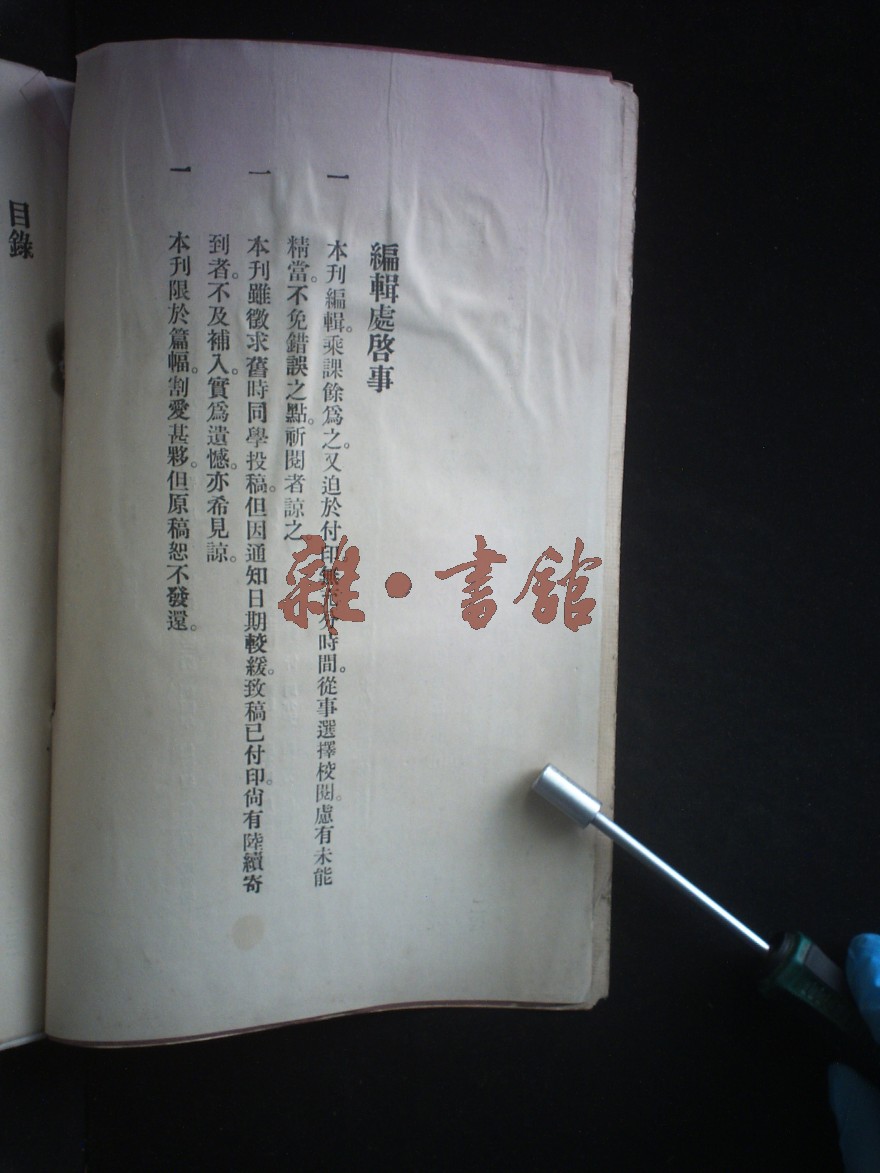 編輯處啓事
一 本刊編輯。乘課餘爲之。又迫於付印無充分時間。從事選擇校閱。慮有未能
精當。不免錯誤之點。祈閱者諒之
一 本刊雖徵求舊時同學投稿。但因通知日期較緩。致稿已付印。尙有陸續寄
到者。不及補入。實爲遺憾。亦希見諒。
一 本刊限於篇幅。割愛甚夥。但原稿恕不發還。
目錄
雜·書館